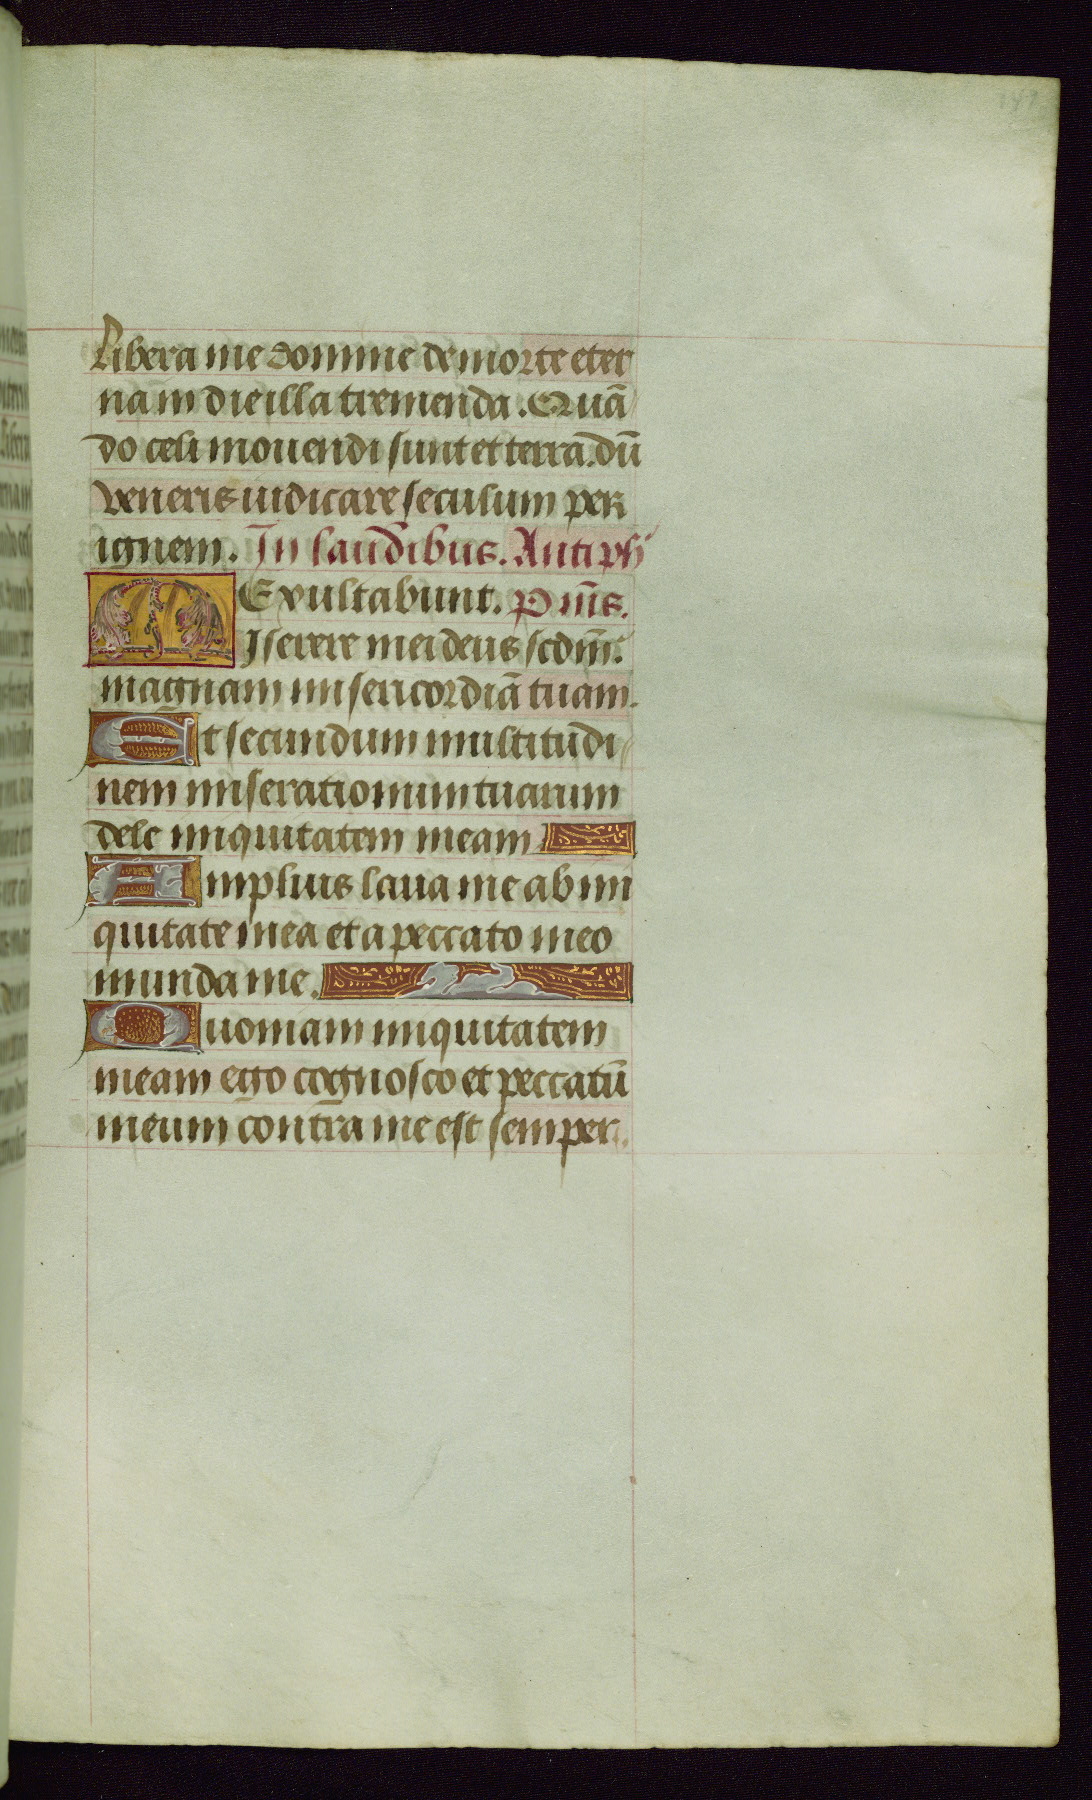 Libera me domine de morte eter
na in die illa tremenda. Quā
do celi movendi sunt et terra. dū
veneris iudicare seculum per
ignem. In laudibus. Antiph
Exultabunt. Psm̄s.
Miserere mei deus scdm̄.
magnam misericordiā tuam.
Et secundum multitudi
nem miserationum tuarum
dele iniquitatem meam
Amplius lava me ab ini
quitate mea et a peccato meo
munda me.
Quoniam iniquitatem
meam ego cognosco et peccatū
meum contra me est semper.